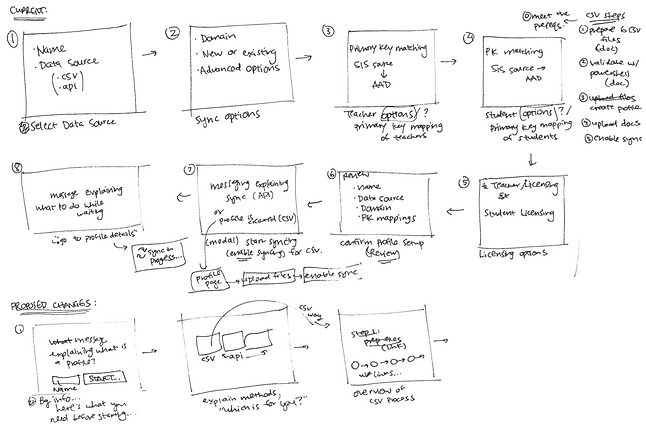 CURRENT:
①
· Name
· Data Source
(· csv
· api)
Select Data Source
②
· Domain
· New or existing
· Advanced options
sync options
③
Primary key matching
SIS source
↓
AAD
Teacher options/?
primary key mapping
of teachers
④
PK matching
SIS source →
AAD
student options?/
primary key mapping
of students
⓪ meet the
prereqs.
CSV steps
① prepare 6 CSV
files
(doc)
② validate w/
powershell
(doc)
③ upload files
create profile
④ upload docs
⑤ enable sync
⑧
message explaining
what to do while
waiting
"go to profile details"
sync in
progress...
⑦
messaging explaining
sync (API)
or
profile is created (CSV)
(modal) start syncing
(enable syncing) for CSV.
profile
page
upload files
enable sync
⑥
review
· name
· Data source
· Domain
· PK mappings
confirm Profile Setup
(Review)
⑤
Teacher Licensing
Student Licensing
Licensing options
PROPOSED CHANGES:
①
what message
explaining what is
a profile?
START...
Name
info...
here's what you
need before starting...
CSV
api
explain methods,
"which is for you?"
CSV
way
Step 1:
(link)
overview of
CSV process